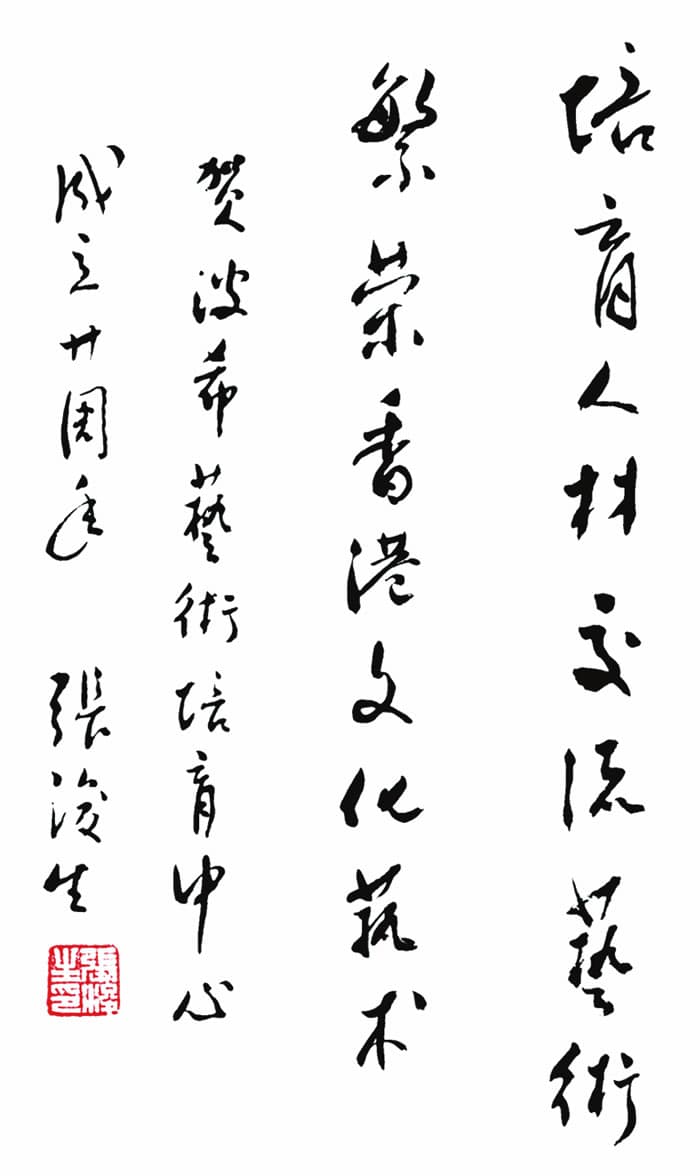 培育人材交流藝術
繁荣香港文化藝术
贺波希藝術培育中心
成立廿周年 張浚生
張浚生印